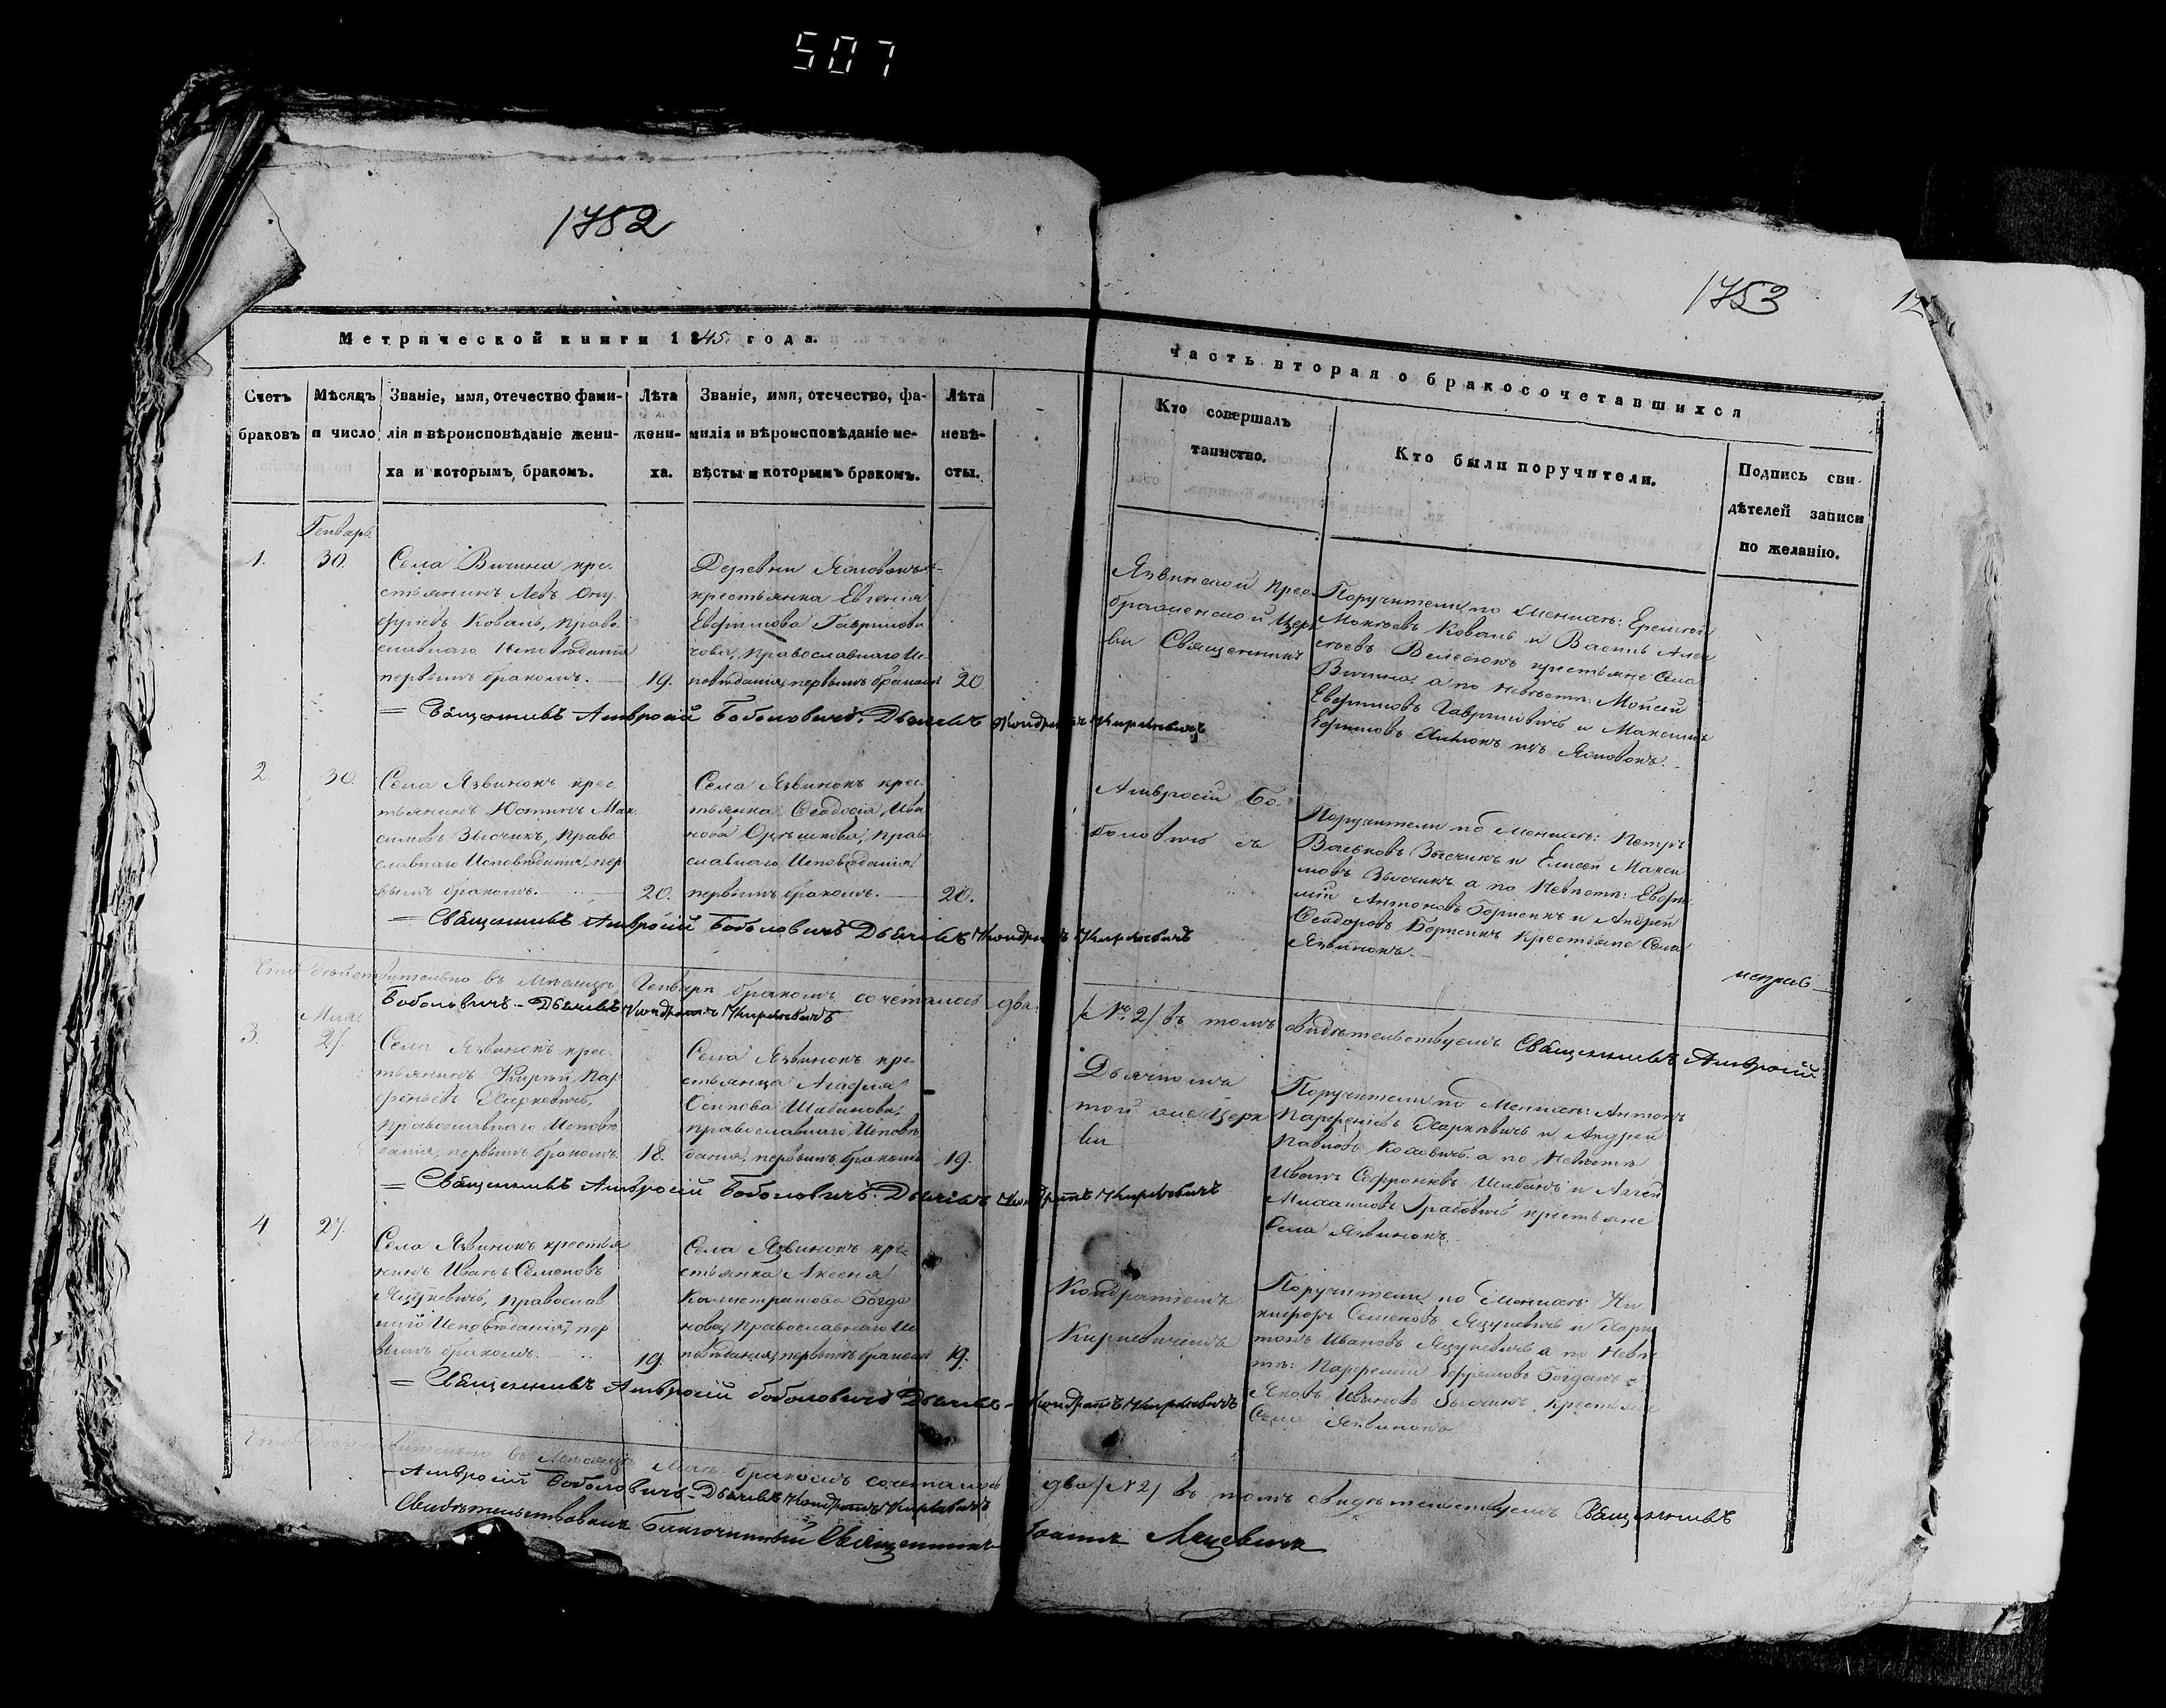 507
1752
1753
Метрической книги 1845. года.
часть вторая о бракосочетавшихся
Счетъ браковъ
Мѣсяцъ и число
Званіе, имя, отечество фами-
лія и вѣроисповѣданіе жени-
ха и которымъ бракомъ.
Лѣта
жени-
ха.
Званіе, имя, отечество, фа-
милія и вѣроисповѣданіе не-
вѣсты и которымъ бракомъ.
Лѣта
невѣ-
сты.
Кто совершалъ
таинство.
Кто были поручители.
Подпись сви-
дѣтелей записи
по желанію.
Генварь
1.
30.
Села Вичина кре-
стьянинъ Левъ Ону
фріевъ Коваль, право
славнаго Исповѣданія
первымъ бракомъ.
19.
Деревни
крестьянка Евгенія
Евфимова
православнаго Ис-
повѣданія, первымъ бракомъ
20
Язвинской Прео-
браженской Церк
ви Священникъ
Поручители по Женихѣ:
Коваль и Василь Алек
сѣевъ крестьяне Села
Вичина, а по Невѣстѣ: Моисей
Евфимовъ и Максимъ
= Священникъ Амвросій Боболовичъ. Дьячекъ Кондратъ Киркевичъ
2.
30.
Села Язвинокъ крес
тьянинъ Юстинъ Мак
симовъ Зысчикъ, Право
славнаго Исповѣданія, пер
вымъ бракомъ.
20.
Села Язвинокъ крес
тьянка Ѳеодосія Ива
нова право
славнаго Исповѣданія
первымъ бракомъ.
20.
Амвросій Бо-
боловичъ съ
Поручители по Женихѣ: Петръ
Зысчикъ и Елисей Макси
мовъ Зысчикъ а по Невѣстѣ: Евфи
мій Антоновъ и Андрей
Ѳеодоровъ крестьяне Села
Язвинокъ.
= Священникъ Амвросій Боболовичъ Дьячекъ Кондратъ Киркевичъ
Что действительно въ Мѣсяцѣ Генварѣ бракомъ сочеталось два
/№ 2/ въ томъ свидѣтельствуемъ Священникъ Амвросій
Боболовичъ - Дьячекъ Кондратъ Киркевичъ
Мая.
3.
27.
Села Язвинокъ крес-
тьянинъ Кирилъ Пар
феньевъ Харкевичъ,
православнаго Исповѣ
данія, первымъ бракомъ.
18.
Села Язвинокъ кре-
стьянка Агафія
Осипова Шабанова,
православнаго Исповѣ
данія, первымъ бракомъ
19.
Дьячкомъ
той же Церк
ви
Поручители по Женихѣ: Антонъ
Парфеніевъ Харкевичъ и Андрей
Павловъ а по Невѣстѣ
Иванъ Софроніевъ Шабанъ и
крестьяне
Села Язвинокъ.
= Священникъ Амвросій Боболовичъ. Дьячекъ Кондратъ Киркевичъ
4
27.
Села Язвинокъ крестья
нинъ Иванъ Семеновъ
Яцукевичъ, православ
наго Исповѣданія, пер
вымъ бракомъ.
19.
Села Язвинокъ кре-
стьянка Аксенія
Калистратова Богда
нова, православнаго Ис
повѣданія, первымъ бракомъ
19.
Кондратіемъ
Киркевичемъ
Поручители по Женихѣ: Ни
кифоръ Семеновъ Яцукевичъ и Хари
тонъ Ивановъ Яцукевичъ а по Невѣ
стѣ: Парфеній Ефремовъ Богданъ и
Яковъ Ивановъ Зысчикъ, крестьяне
Села Язвинокъ
= Священникъ Амвросій Боболовичъ Дьячекъ - Кондратъ Киркевичъ
Что действительно въ Мѣсяцѣ Маѣ бракомъ сочеталось два /№2/ въ томъ свидѣтельствуемъ Священникъ
Амвросій Боболовичъ - Дьячекъ Кондратъ Киркевичъ
Свидѣтельствовалъ Благочинный Священникъ Іоаннъ Мацевичъ